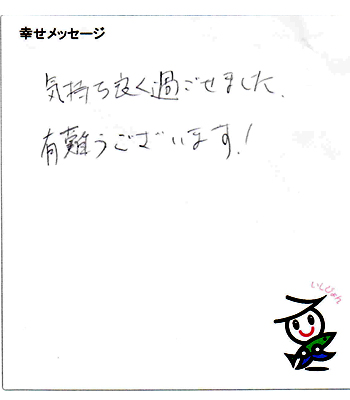 幸せメッセージ
気持ち良く過ごせました.
有難うございます!
いしぴょん